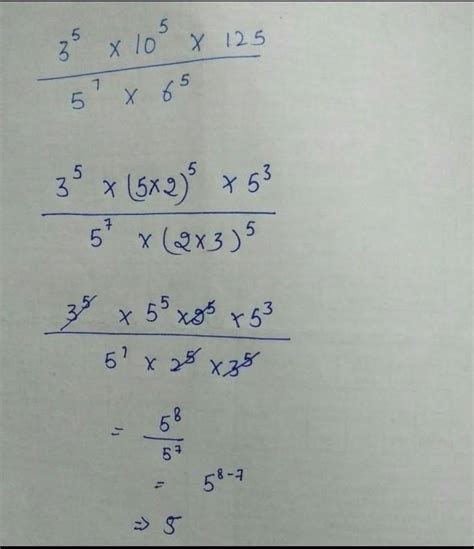 3⁵ × 10⁵ × 125
5⁷ × 6⁵
3⁵ × (5×2)⁵ × 5³
5⁷ × (2×3)⁵
3⁵ × 5⁵ × 2⁵ × 5³
5⁷ × 2⁵ × 3⁵
= 5⁸
5⁷
= 5⁸⁻⁷
⇒ 5